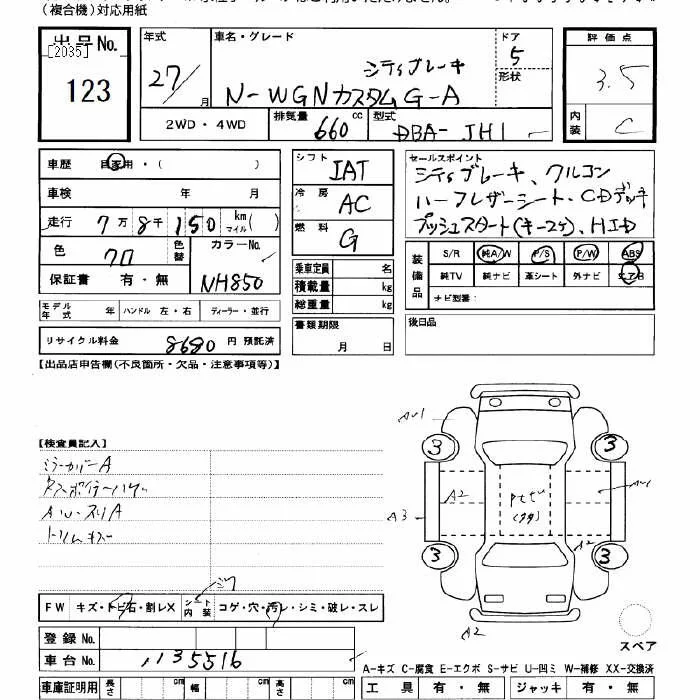 (複合機)対応用紙
出品No.
[2035]
123
年式
27/
月
車名・グレード
シティブレーキ
N-WGNカスタムG-A
ドア
5
形状
2WD・4WD
排気量
660
cc
型式
DBA-JH1
評価点
3.5
内装
C
車歴
自家用・(
)
車検
年
月
走行
7万8千150
km
マイル
( )
色
クロ
色替
カラーNo.
NH850
保証書
有・無
シフト
IAT
冷房
AC
燃料
G
乗車定員
名
積載量
kg
総重量
kg
セールスポイント
シティブレーキ、クルコン
ハーフレザーシート、CDデッキ
プッシュスタート(キー2ケ)、HID
装備品
S/R
純A/W
P/S
P/W
ABS
純TV
純ナビ
革シート
外ナビ
エアB
ナビ型番:
モデル年式
年
ハンドル
左・右
ディーラー・並行
リサイクル料金
8680
円
預託済
書類期限
月
日
後日品
【出品店申告欄(不良箇所・欠品・注意事項等)】
【検査員記入】
ミラーカバーA
トリムキズ
A3
A2
A2
A2
3
3
3
3
FW
キズ・トビ石・割レX
シート内装
コゲ・穴・汚レ・シミ・破レ・スレ
登録No.
車台No.
1135516
スペア
A-キズ C-腐食 E-エクボ S-サビ U-凹ミ W-補修 XX-交換済
車庫証明用
長さ
cm
幅
cm
高さ
cm
工具
有・無
ジャッキ
有・無